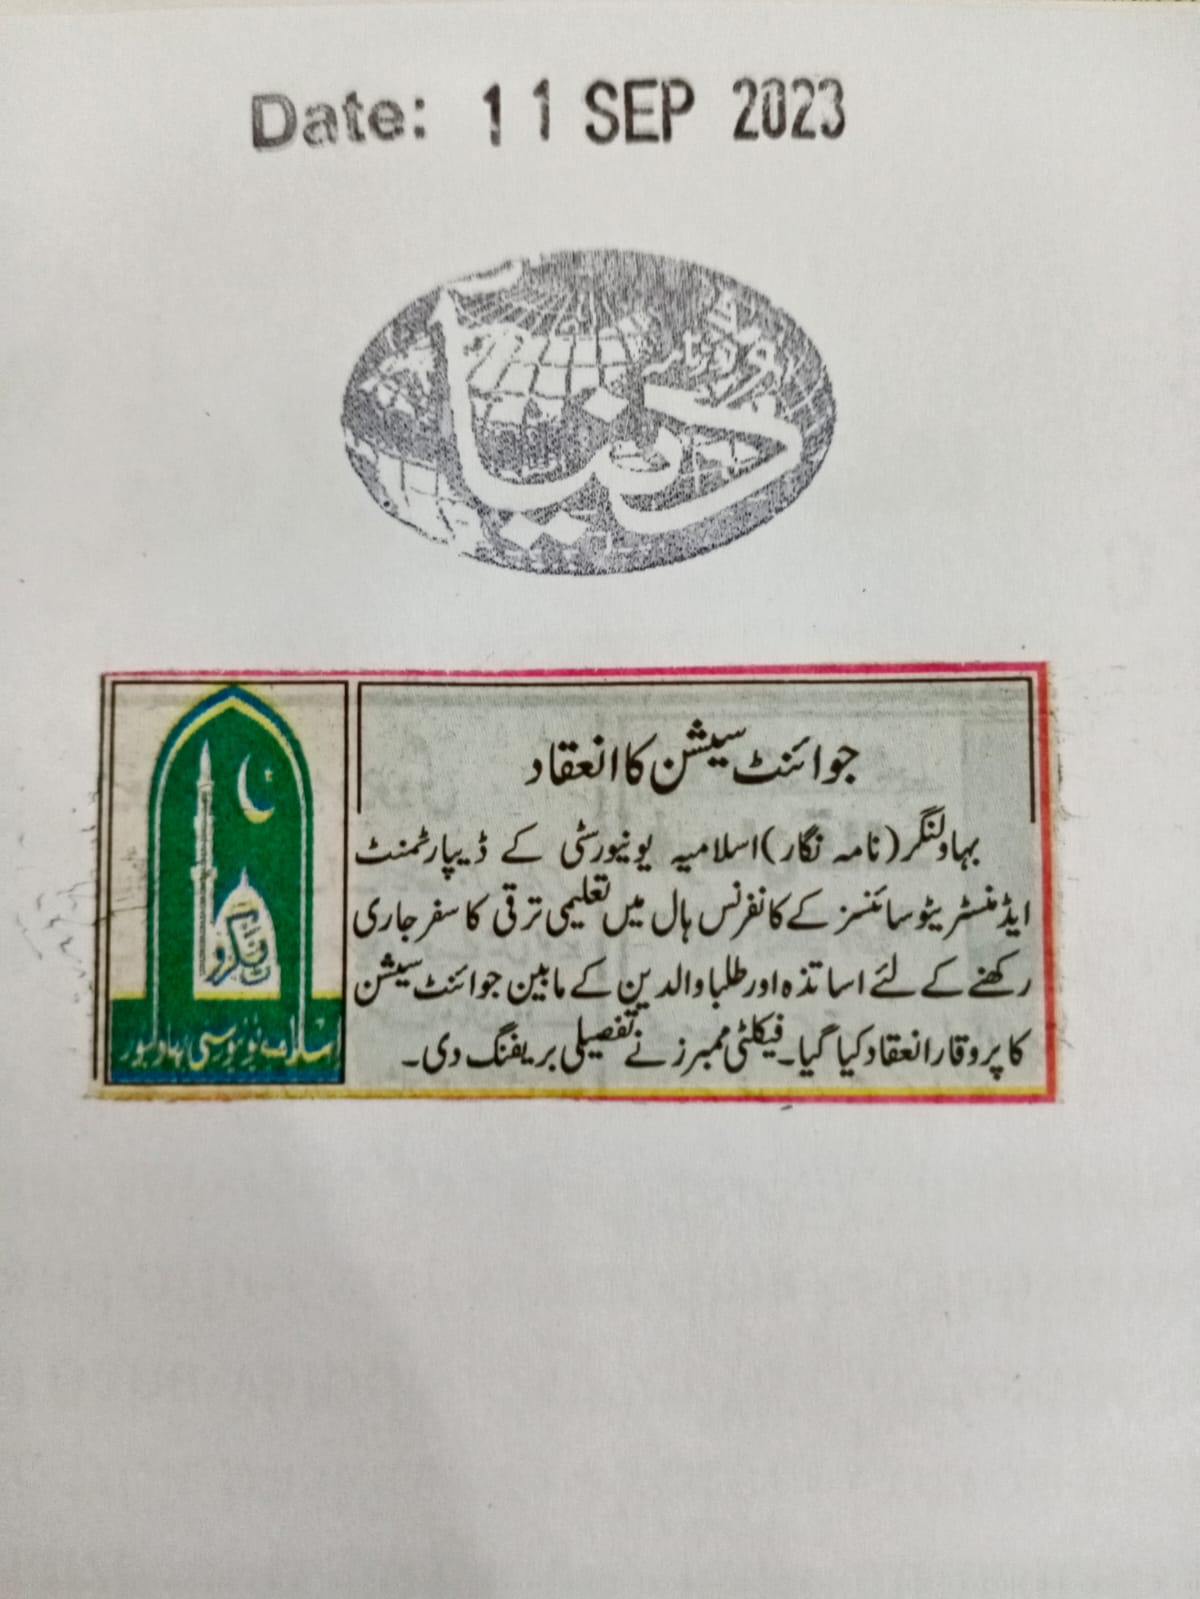 Date: 11 SEP 2023
روزنامہ
دنیا
جوائنٹ سیشن کا انعقاد
بہاولنگر(نامہ نگار)اسلامیہ یونیورسٹی کے ڈیپارٹمنٹ
ایڈمنسٹریٹو سائنسز کے کانفرنس ہال میں تعلیمی ترقی کا سفر جاری
رکھنے کے لئے اساتذہ اور طلبا والدین کے مابین جوائنٹ سیشن
کا پروقار انعقاد کیا گیا۔ فیکلٹی ممبرز نے تفصیلی بریفنگ دی۔
اسلامیہ یونیورسٹی بہاولپور